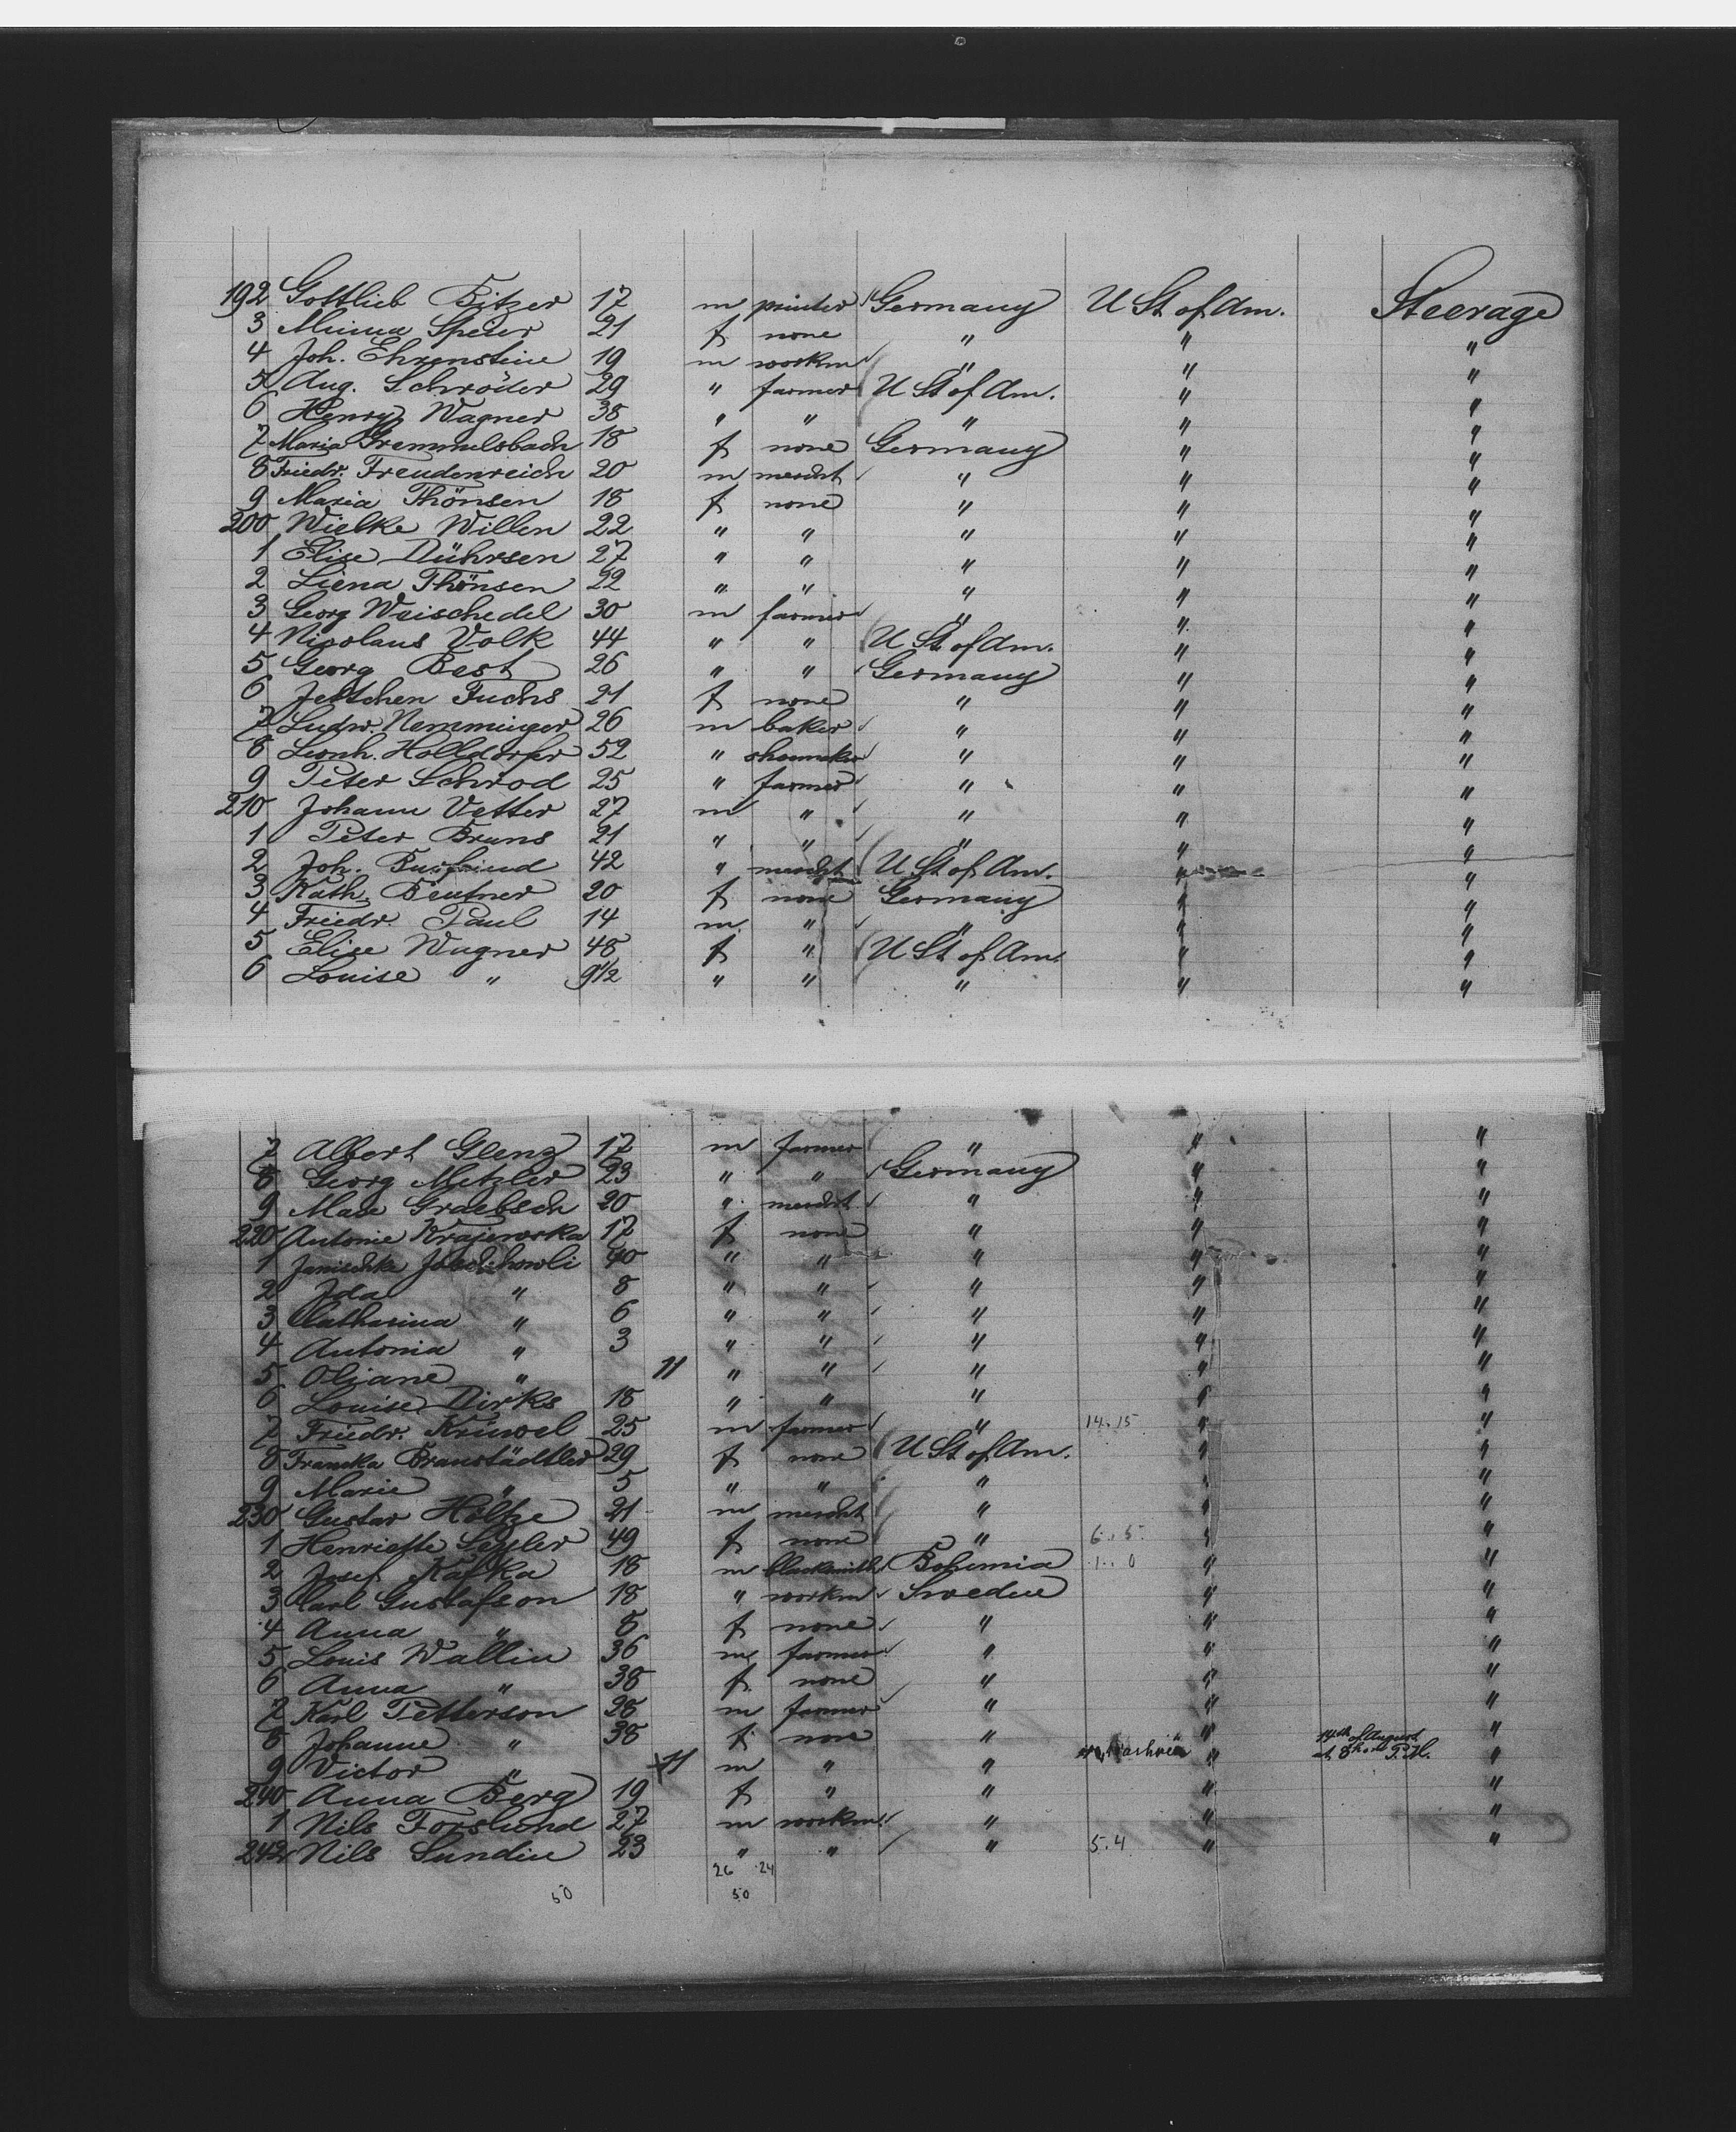 192 Gottlieb Bitzer 17 m printer Germany U St of Am. Steerage
3 Minna Speier 21 f none " " "
4 Joh. Ehrenstein 19 m workm " " "
5 Aug. Schröder 29 " farmer U St of Am. " "
6 Henry Wagner 38 " " " " "
7 Maria Gremmelsbach 18 f none Germany " "
8 Friedr. Freudenreich 20 m mercht " " "
9 Maria Thönsen 18 f none " " "
200 Wielke Willen 22 " " " " "
1 Elise Dührsen 27 " " " " "
2 Liena Thönsen 22 " " " " "
3 Georg Weischedel 30 m farmer " " "
4 Nicolaus Volk 44 " " U St of Am. " "
5 Georg Best 26 " " Germany " "
6 Jettchen Fuchs 21 f none " " "
7 Ludw. Nemminger 26 m baker " " "
8 Leonh. Holldorfer 52 " shoemaker " " "
9 Peter Schrod 25 " farmer " " "
210 Johann Vetter 27 m " " " "
1 Peter Bruns 21 " " " " "
2 Joh. 42 " mercht U St of Am. " "
3 Kath. Beutner 20 f none Germany " "
4 Friedr. Paul 14 m " " " "
5 Elise Wagner 48 f " U St of Am. " "
6 Louise " 9 1/2 " " " " "
7 Albert Glenz 17 m farmer " " "
8 Georg Metzler 23 " " Germany " "
9 Max Graebsch 20 " mercht " " "
220 Antonie Krajewska 17 f none " " "
1 Janischke 40 " " " " "
2 Ida " 8 " " " " "
3 Catharina " 6 " " " " "
4 Antonia " 3 " " " " "
5 Oliane " 11 " " " " "
6 Louise Dirks 18 " " " " "
7 Friedr. Krüwel 25 m farmer " 14.15 " "
8 Franzka Branstädtler 29 f none U St of Am. " "
9 Marie " 5 " " " " "
230 Gustav Holtze 21 m mercht " " "
1 Henriette Segler 49 f none " 6.5 " "
2 Josef Kafka 18 m blacksmith Bohemia 1..0 " "
3 Carl Gustafson 18 " workm Sweden " "
4 Anna " 8 f none " " "
5 Louis Wallin 36 m farmer " " "
6 Anna " 38 f none " " "
7 Karl Petterson 28 m farmer " " "
8 Johanne " 38 f none " " "
9 Victor " 11 m " " " 14th of August at 8 P.M. "
240 Anna Berg 19 f " " " "
1 Nils Forslund 27 m workm " " "
242 Nils Sundin 23 " " " 5.4 " "
26 24
50 50